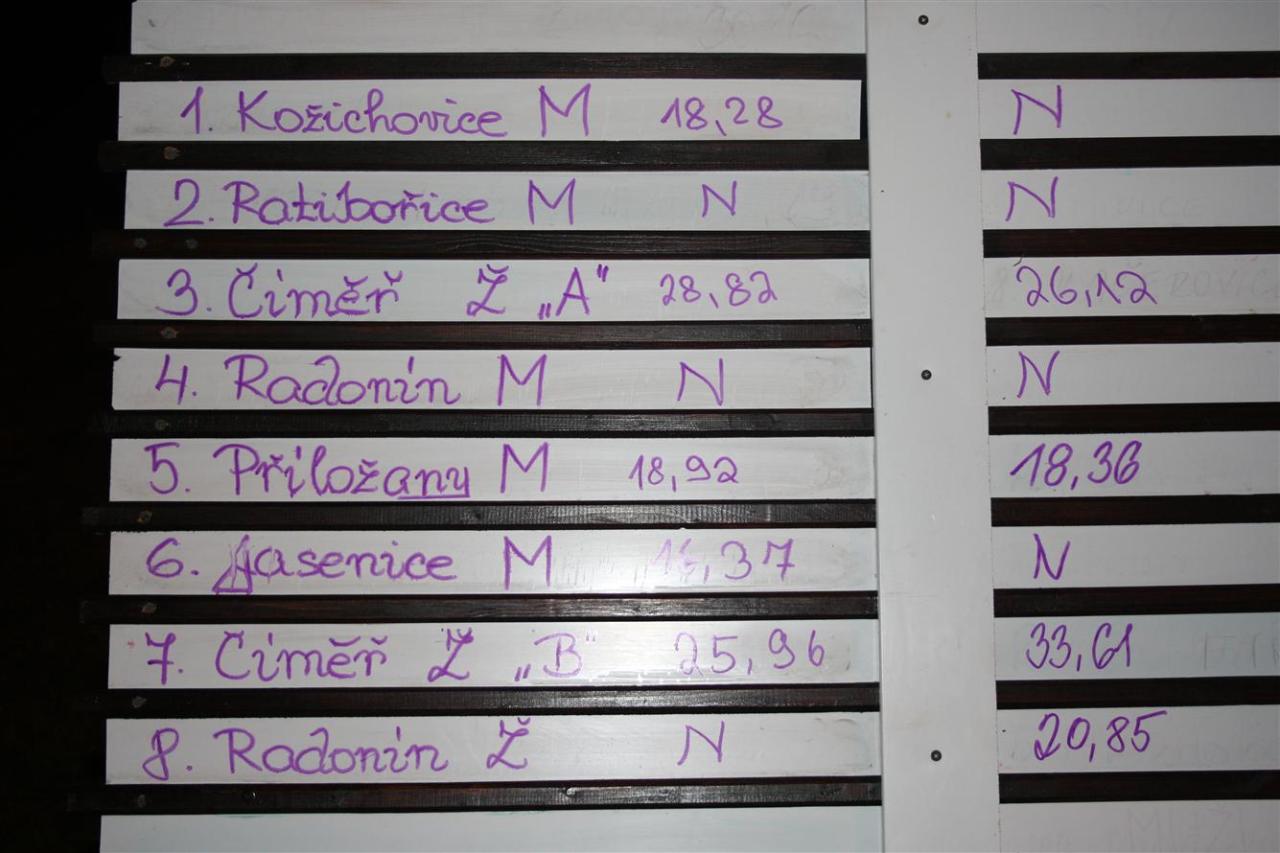 1. Kožichovice M 18,28 N
2. Ratibořice M N N
3. Číměř Ž „A" 28,82 26,12
4. Radonín M N N
5. Příložany M 18,92 18,36
6. Jasenice M 16,37 N
7. Číměř Ž „B" 25,96 33,61
8. Radonín Ž N 20,85